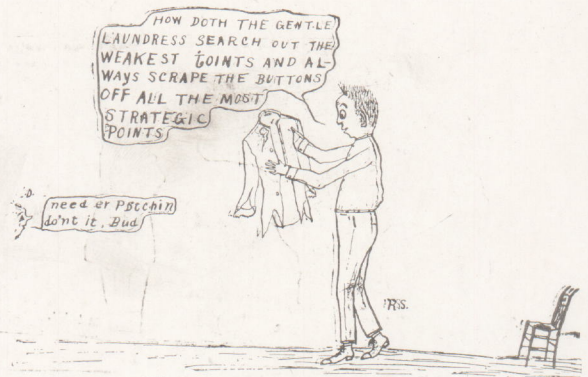 HOW DOTH THE GENTLE
LAUNDRESS SEARCH OUT THE
WEAKEST GOINTS AND AL-
WAYS SCRAPE THE BUTTONS
OFF ALL THE MOST
STRATEGIC
POINTS
need er Patchin
do'nt it, Bud
R.S.